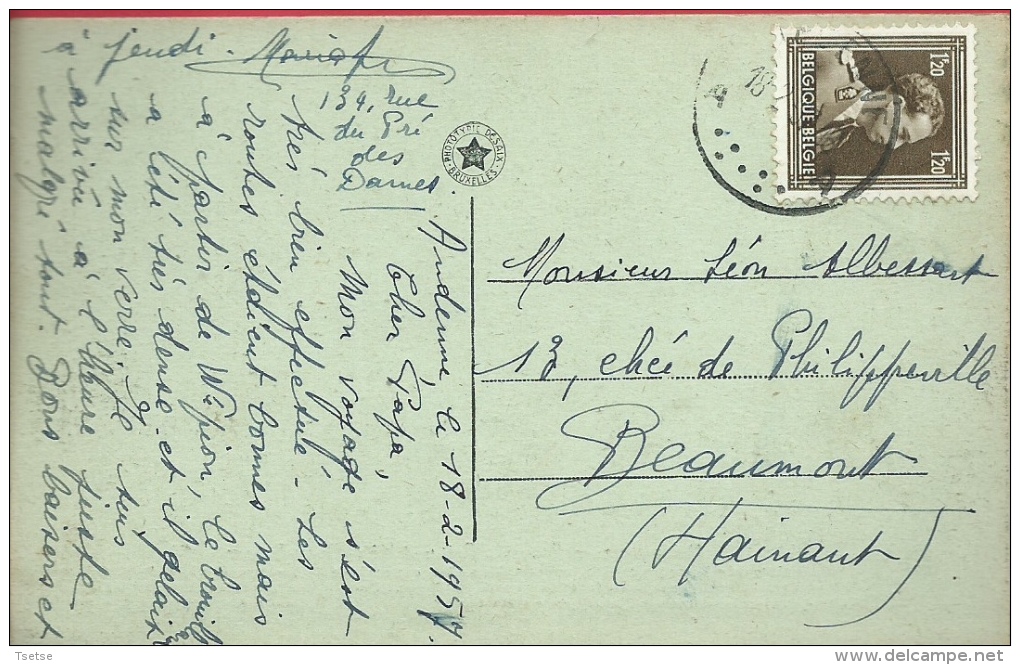 Andenne le 18-2-1957.
Cher Papa,
Mon voyage s'est
très bien effectué - Les
routes étaient bonnes mais
à partir de Wépion, le brouill
a été très dense et il gelait
sur mon verre. Je suis
arrivé à l'heure juste
malgré tout. Bons baisers et
à jeudi.
134, rue
du Pré
des
Dames.
PHOTOTYPIE DESAIX
BRUXELLES
BELGIQUE-BELGIE
1F20
1F20
18
A
A
Monsieur Léon Albessart
13, chée de Philippeville
Beaumont
(Hainaut)
Tsetse